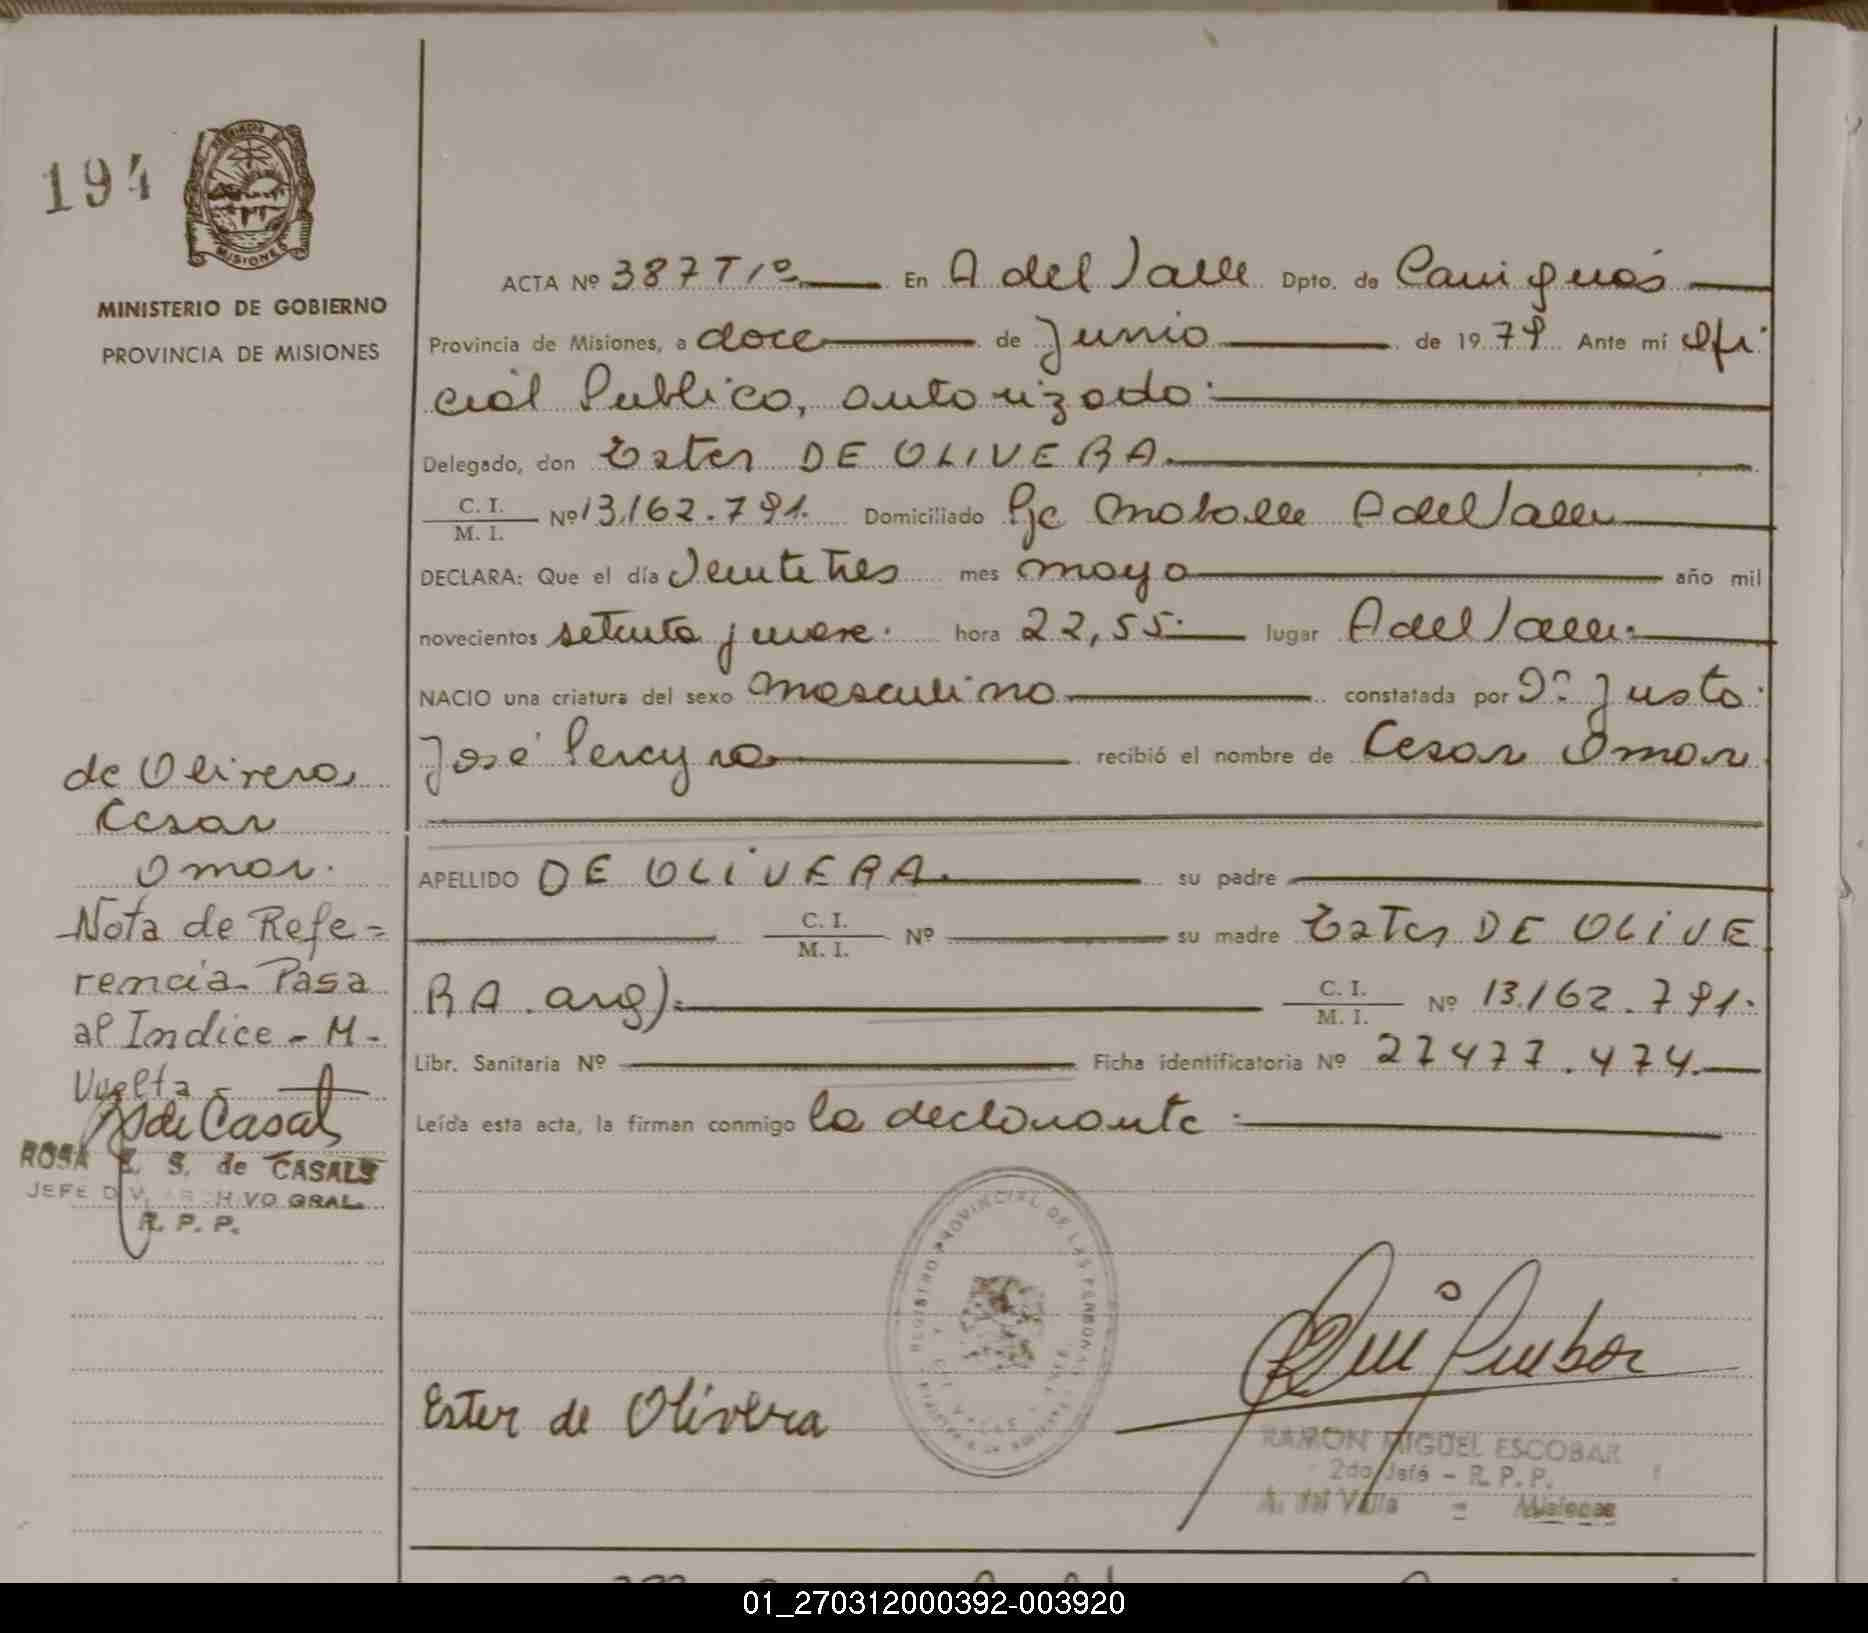 194
PROVINCIA DE
MISIONES
MINISTERIO DE GOBIERNO
PROVINCIA DE MISIONES
ACTA Nº 387 Tº 1º En A del Valle Dpto. de Cainguás
Provincia de Misiones, a doce de Junio de 1979 Ante mí Ofi
cial Publico, autorizado:
Delegado, don Ester DE OLIVERA.
C. I.
M. I. Nº 13.162.791. Domiciliado Pje A del Valle
DECLARA: Que el día Veintetres mes mayo año mil
novecientos setenta y nueve. hora 22,55. lugar A del Valle.
NACIO una criatura del sexo masculino constatada por Dr. Justo
José Pereyra recibió el nombre de Cesar Omar
APELLIDO DE OLIVERA. su padre
C. I.
M. I. Nº su madre Ester DE OLIVE
RA arg). C. I.
M. I. Nº 13.162.791.
Libr. Sanitaria Nº Ficha identificatoria Nº 27477.474.
Leída esta acta, la firman conmigo la declarante:
de Olivera
Cesar
Omar.
Nota de Refe=
rencia Pasa
al Indice - M -
Vuelta -
de Casals
ROSA E. S. de CASALS
JEFE DIV. ARCHIVO GRAL.
R. P. P.
REGISTRO PROVINCIAL DE LAS PERSONAS
Ester de Olivera
RAMON MIGUEL ESCOBAR
2do Jefe - R. P. P.
A. del Valle = Misiones
01_270312000392-003920